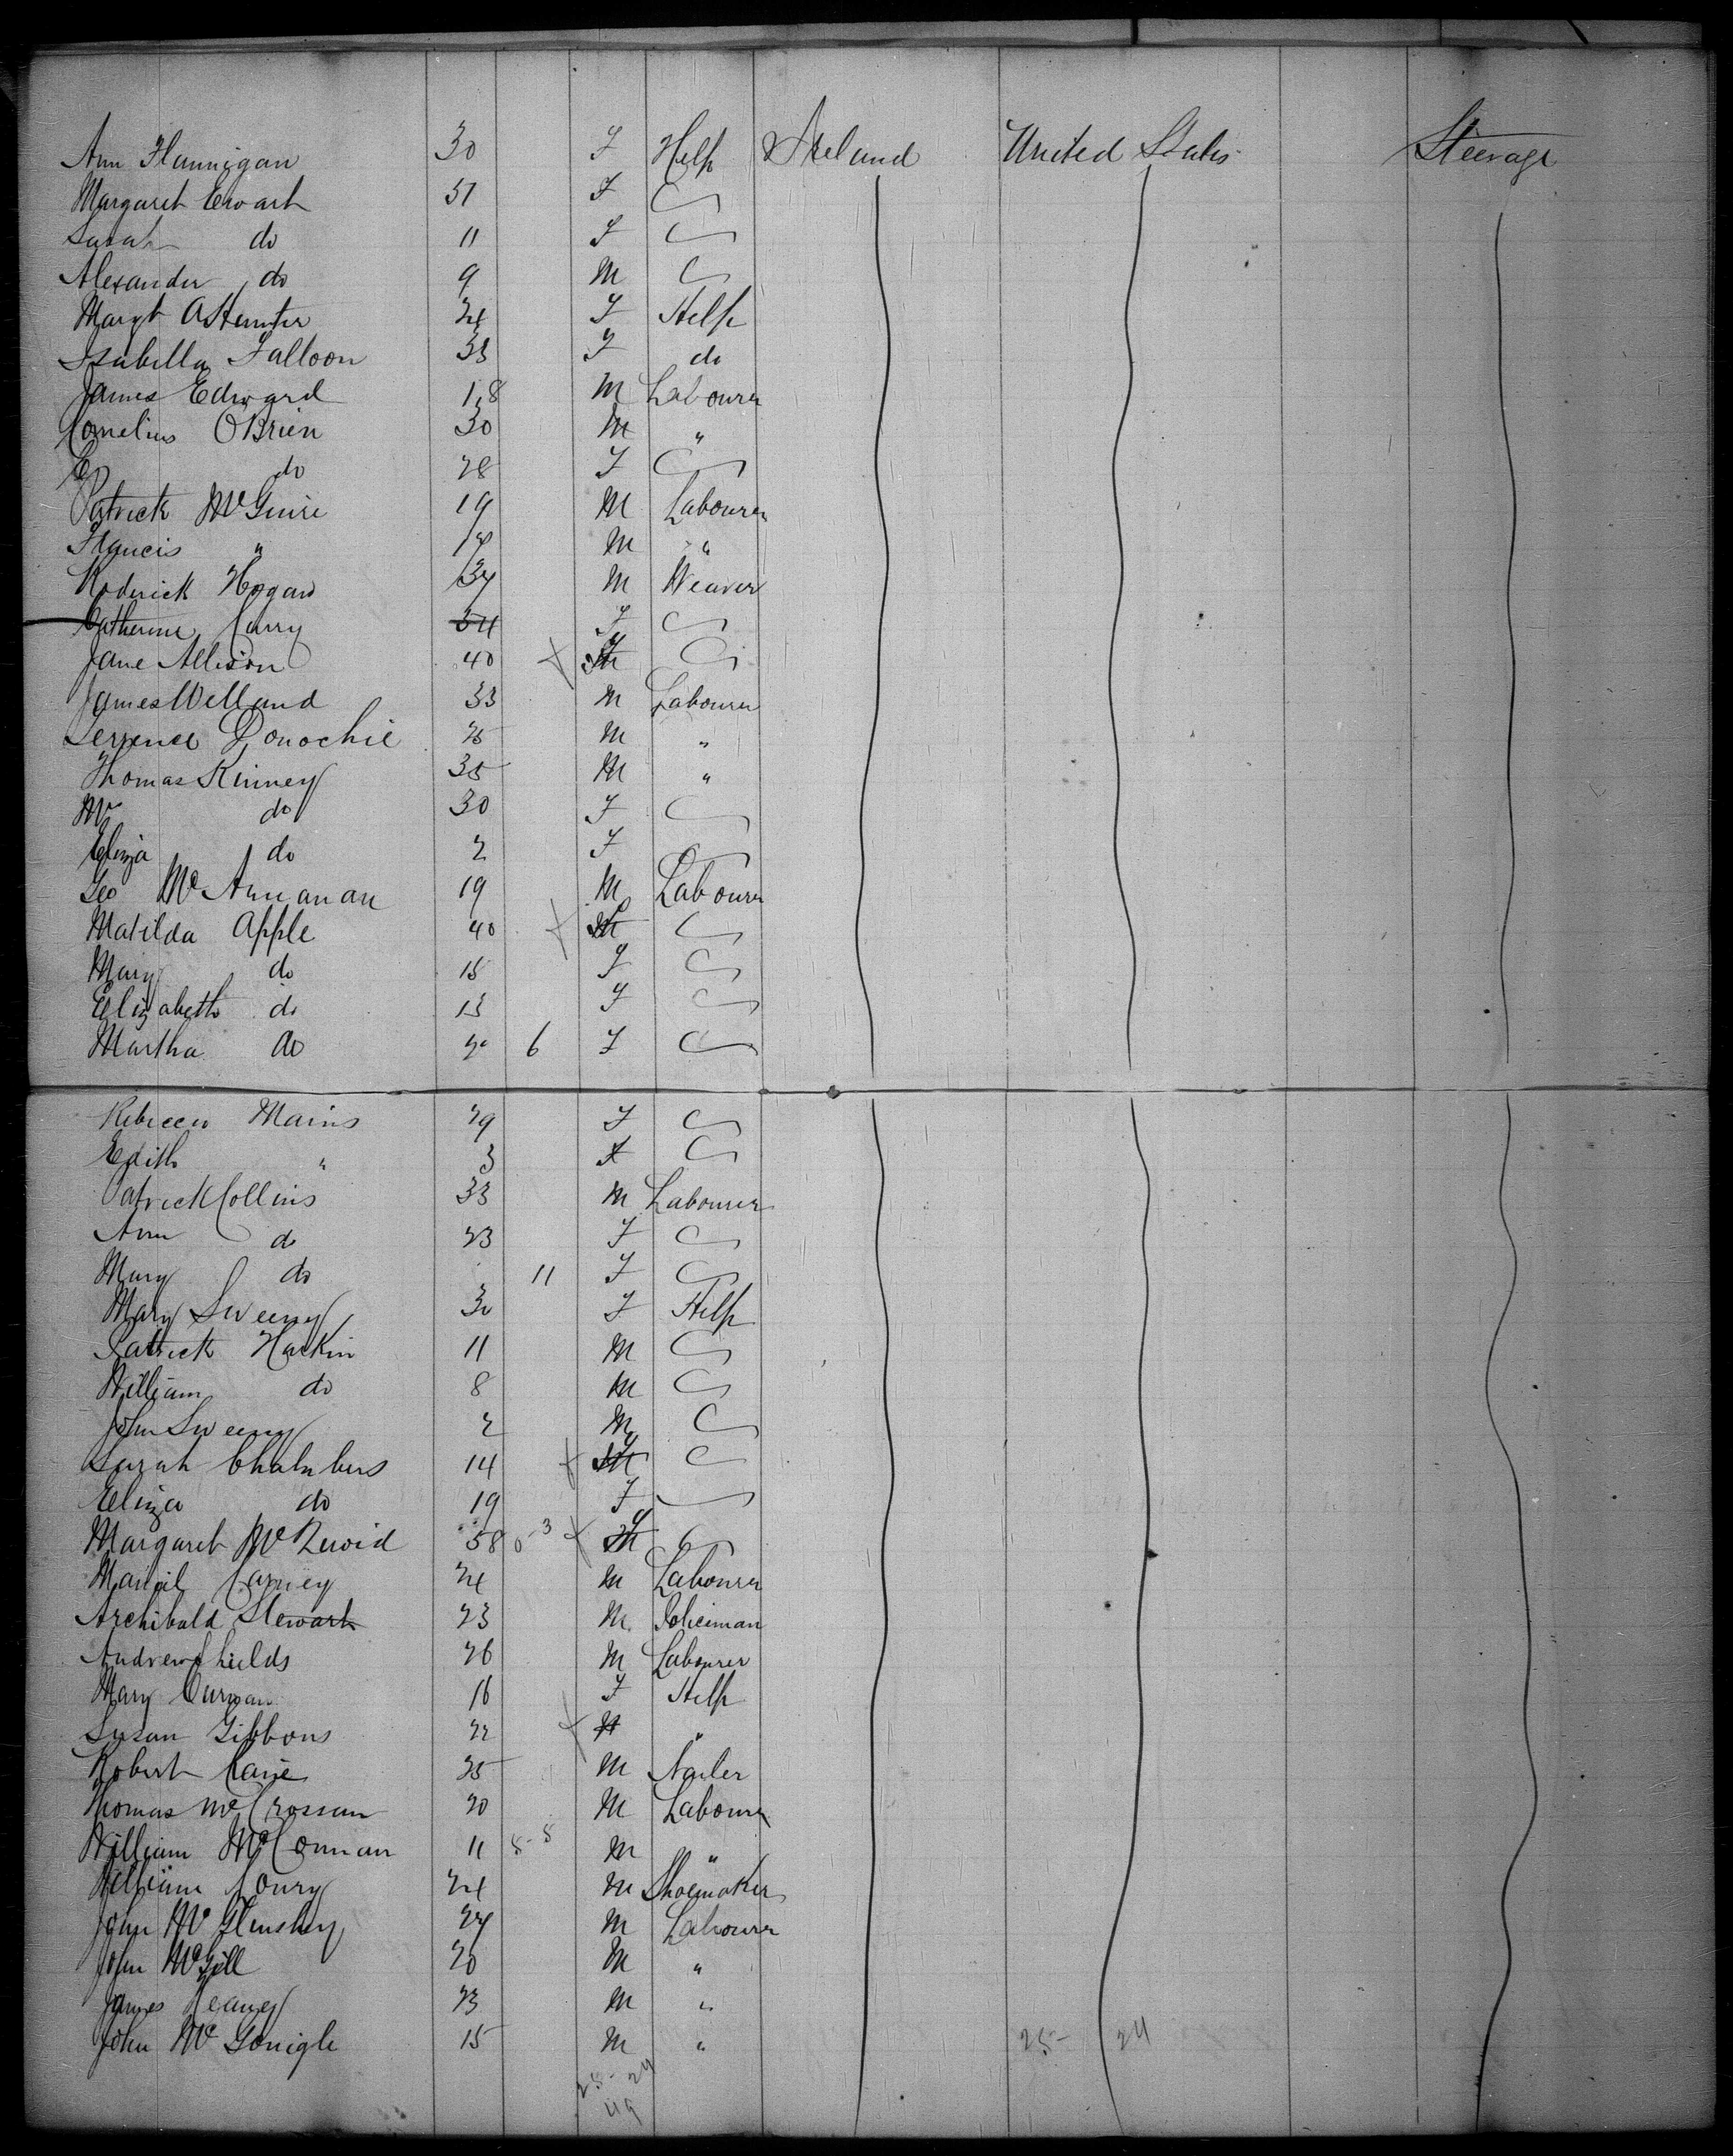 Ann Flannigan 30 F Help Ireland United States Steerage
Margaret Ewart 51 F
Sarah do 11 F
Alexander do 9 M
Margt A Hunter 24 F Help
Isabella Falloon 33 F do
James Edward 18 M Labourer
Cornelius O'Brien 30 M "
do 28 F
Patrick McGuire 19 M Labourer
Francis " M "
Roderick Hogan M Weaver
Catherine Curry 54 F
Jane Allison 40 F
James Welland 33 M Labourer
Terrence Donochie 25 M "
Thomas Kinney 35 M "
Mrs do 30 F
Eliza do 2 F
Geo McAnnanan 19 M Labourer
Matilda Apple 40 F
Mary do 15 F
Elizabeth do 13 F
Martha do 6 F
Rebecca Mains 29 F
Edith " 3 F
Patrick Collins 33 M Labourer
Ann do 23 F
Mary do 11 F
Mary Sweeny 30 F Help
Patrick Harkin 11 M
William do 8 M
John Sweeny 2 M
Sarah Chalmbers 14 F
Eliza do 19 F
Margaret 58 F
Carney 24 M Labourer
Archibald Stewart 23 M Policeman
Andrew Shields 26 M Labourer
Mary Curran 16 F Help
Susan Gibbons 22 "
Robert Cane 25 M Nailer
Thomas McCrossan 20 M Labourer
William McConnan 11 M "
William Loury 24 M Shoemaker
John McGlinshey 24 M Labourer
John McGill 20 M "
James 23 M "
John McGonigle 15 M " 25- 24
25- 24
49